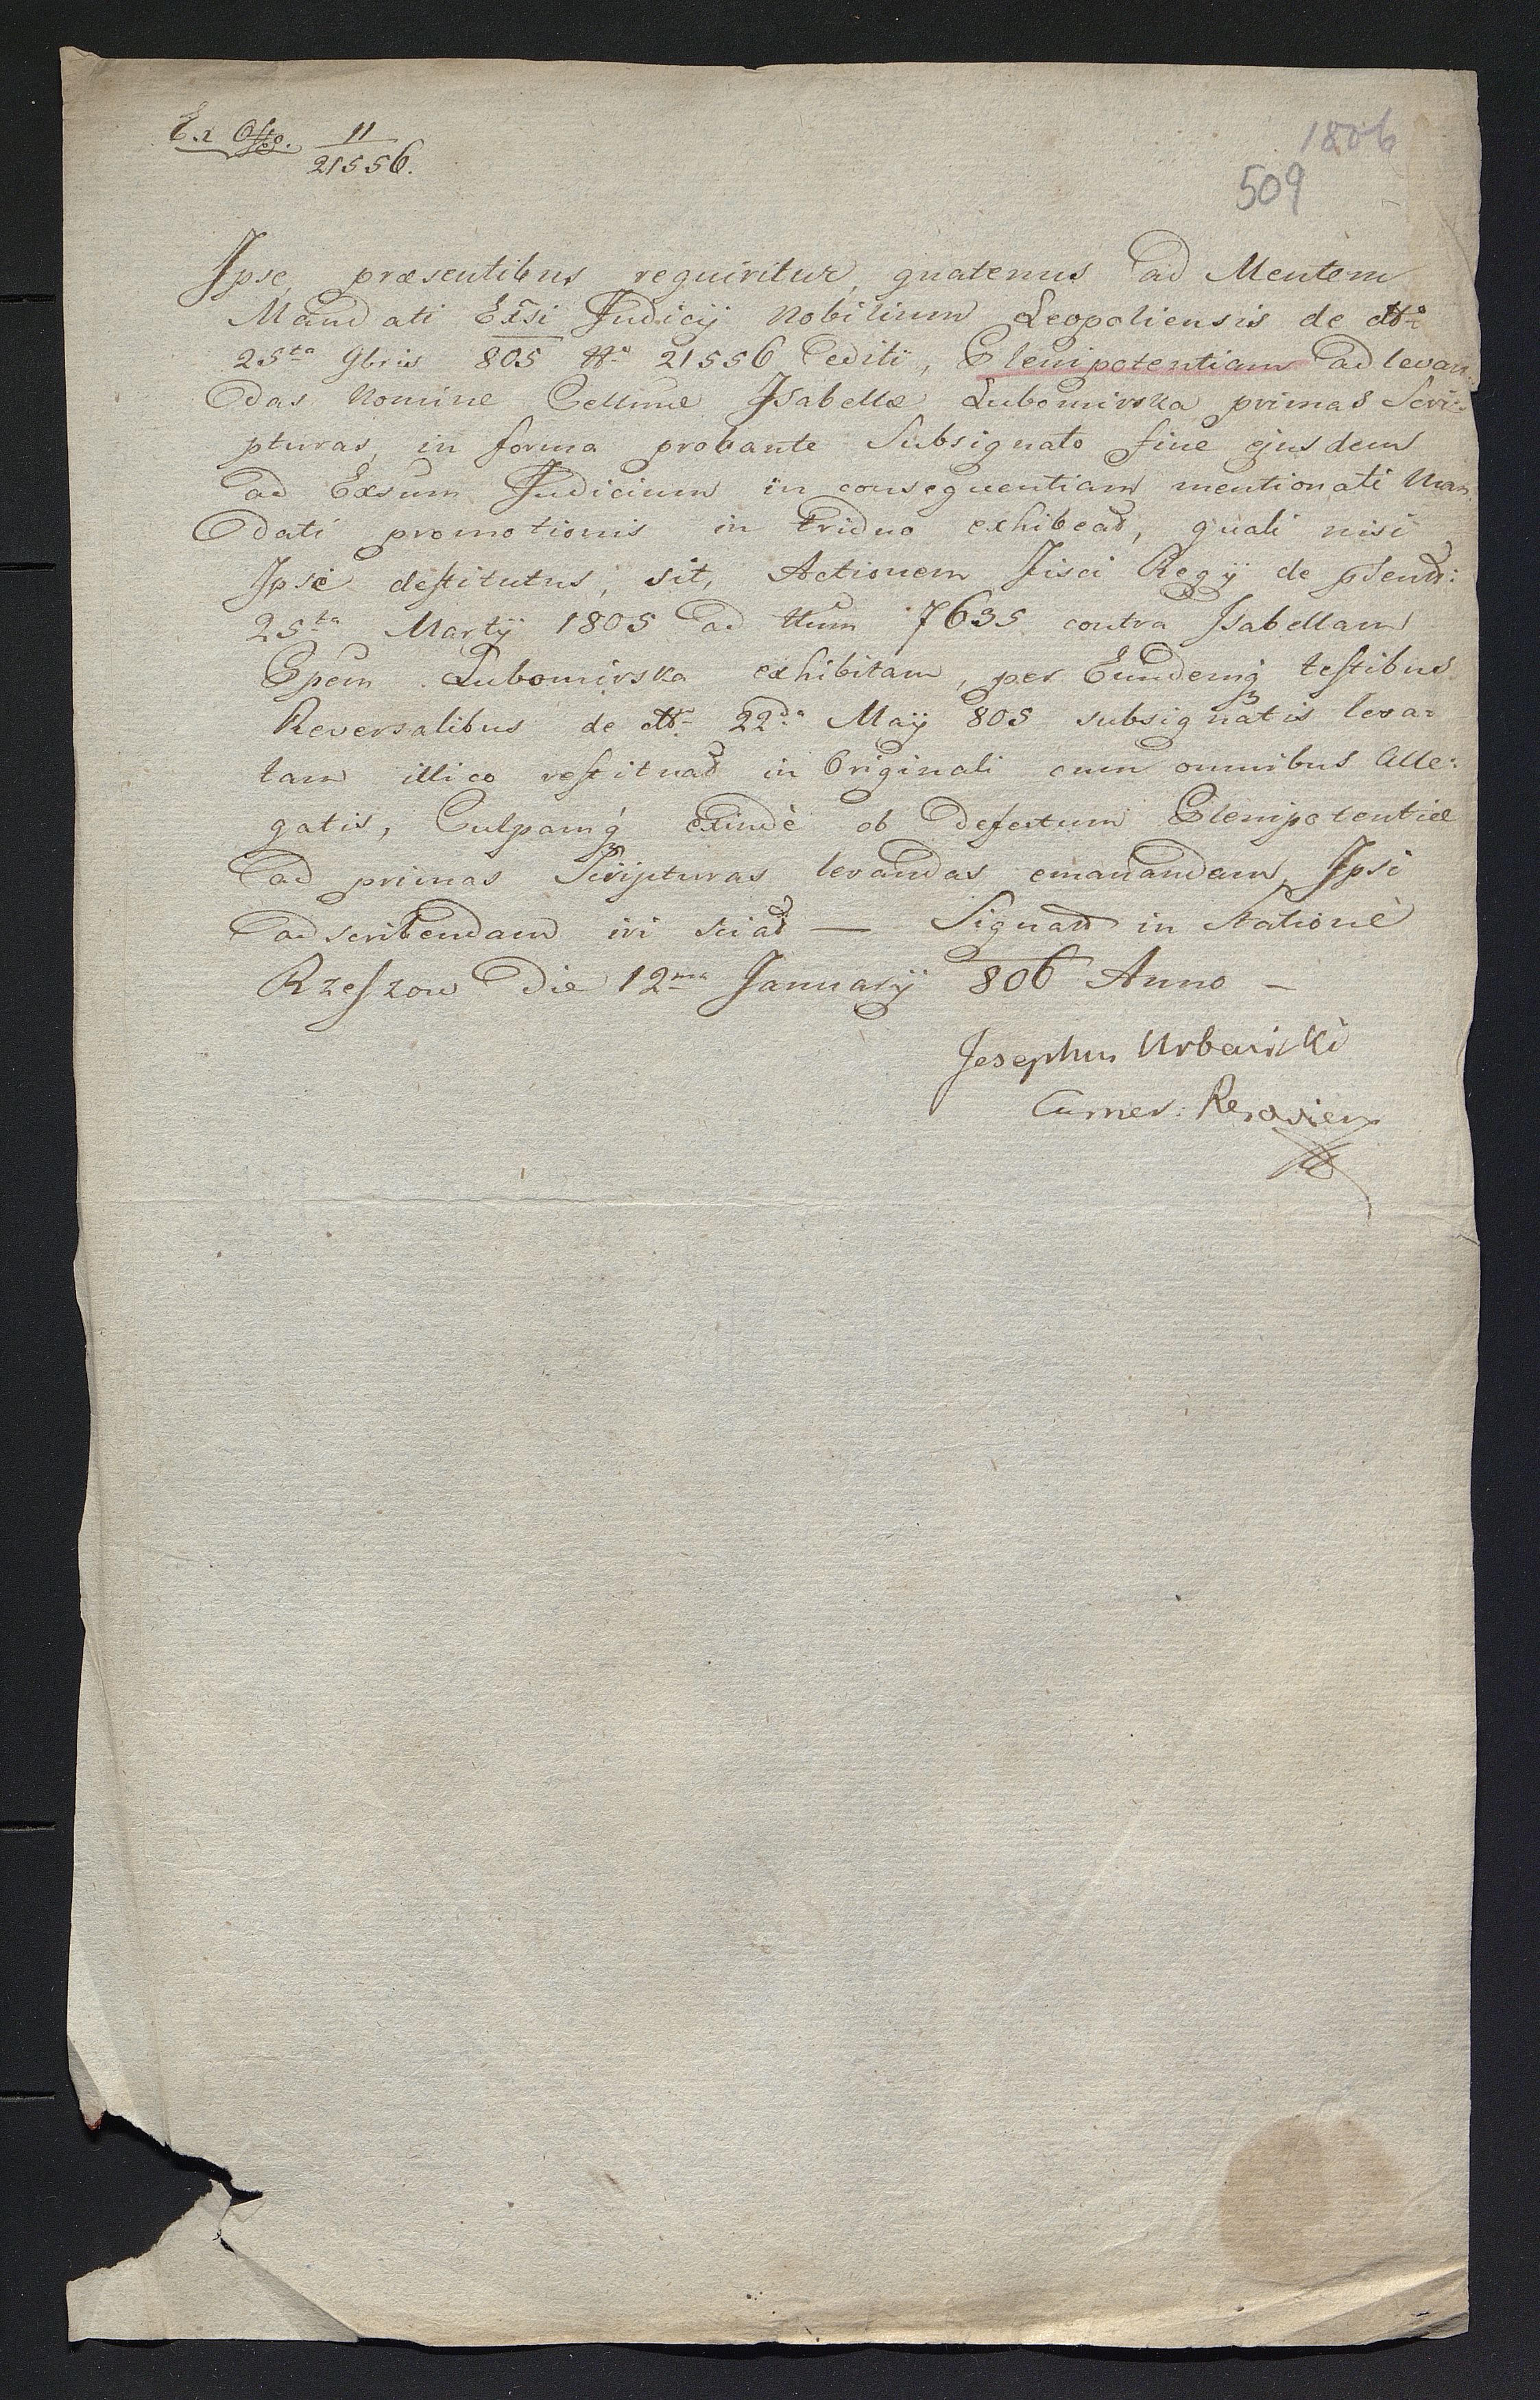 Ex Offo. 11/21556.
1806
509
Ipse præsentibus requiritur, quatenus ad Mentem
Mandati Exsi Judicij Nobilium Leopoliensis de dto
25ta 9bris 805 No 21556 editi, Plenipotentiam ad levan
das Nomine Celsme Isabellæ Lubomirska primas Scri-
pturas, in forma probante Subsignato fine ejusdem
ad Exsum Judicium in consequentiam mentionati Man
dati promotionis in triduo exhibeat, quali nisi
Ipse destitutus, sit, Actionem Fisci Regij de
25ta Martij 1805 ad Num 7635 contra Isabellam
Lubomirska exhibitam, per Eundemq testibus
Reversalibus de dto 22da Maij 805 subsignatis leva-
tam illico restituat in Originali cum omnibus Alle-
gatis, Culpamq exinde ob defectum Plenipotentiæ
ad primas Scripturas levandas emanandam, Ipsi
adscribendam iri sciat — Signat in Statione
Rzeszow die 12ma Januarij 806 Anno —
Josephus Urbański